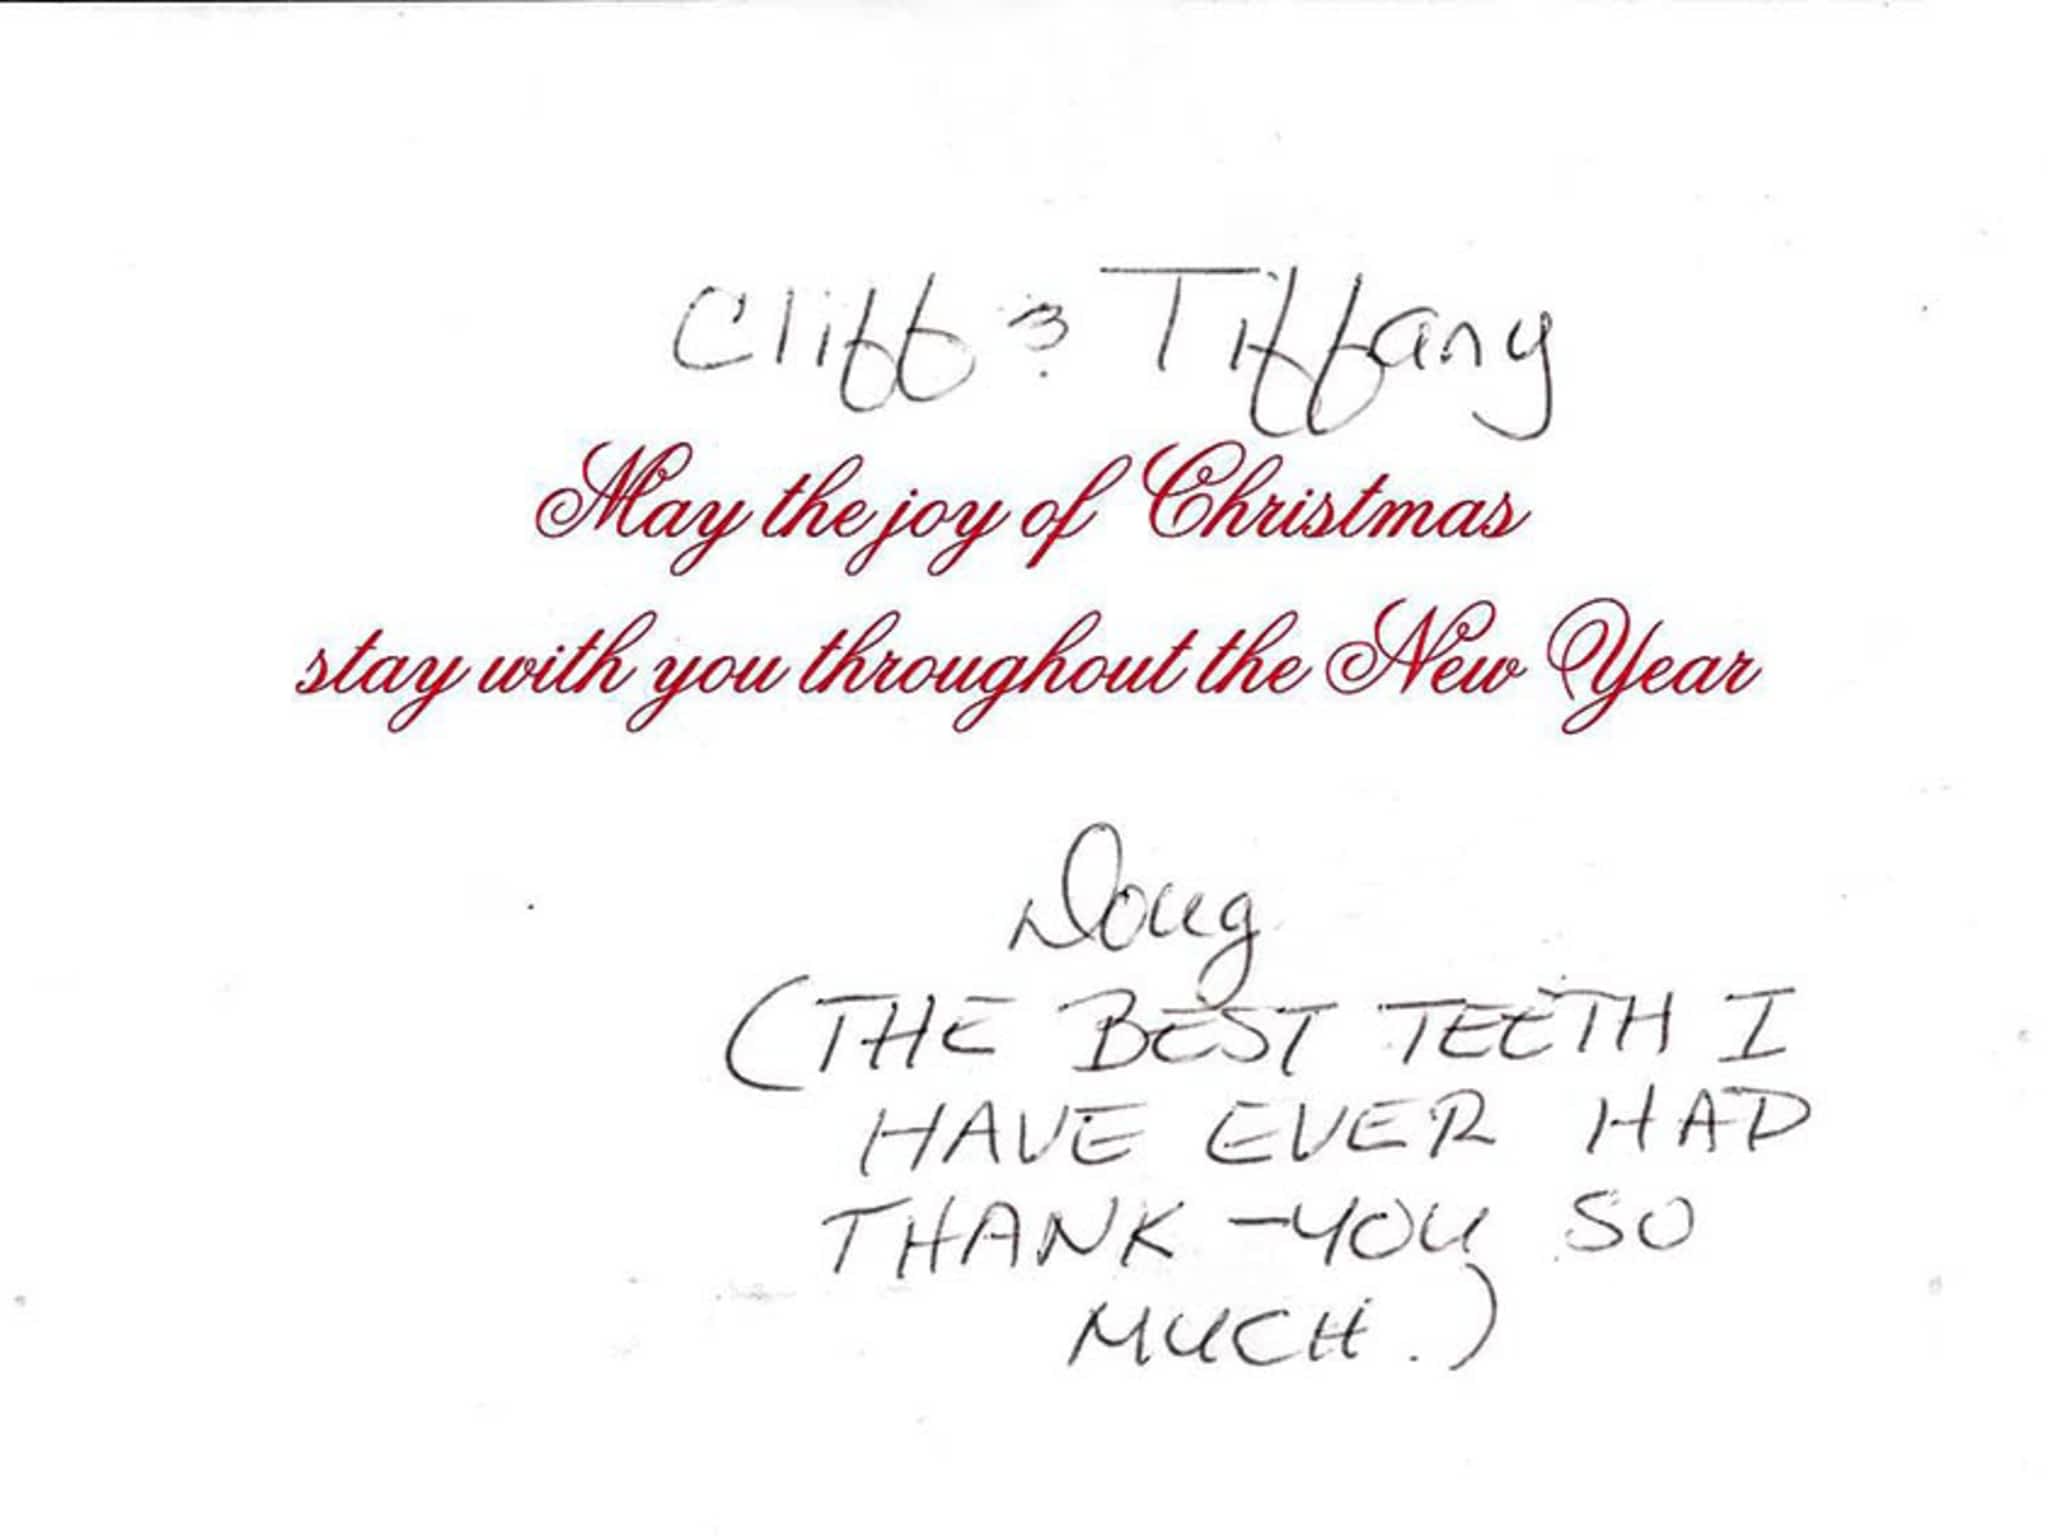 Cliff & Tiffany
May the joy of Christmas
stay with you throughout the New Year
Doug
(THE BEST TEETH I
HAVE EVER HAD
THANK-YOU SO
MUCH.)